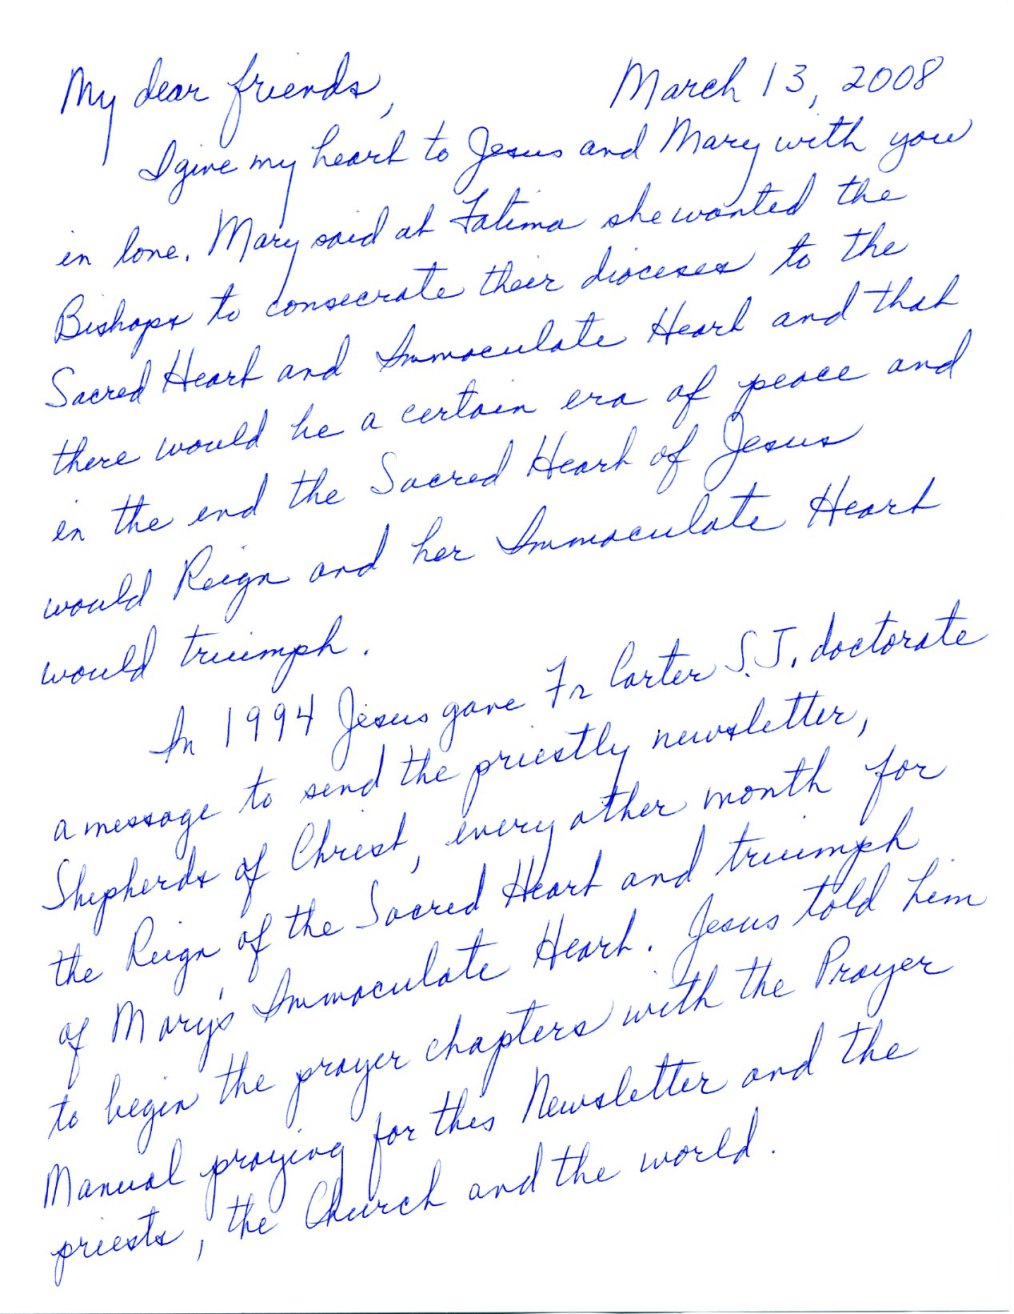 My dear friends, March 13, 2008
I give my heart to Jesus and Mary with you
in love. Mary said at Fatima she wanted the
Bishops to consecrate their dioceses to the
Sacred Heart and Immaculate Heart and that
there would be a certain era of peace and
in the end the Sacred Heart of Jesus
would Reign and her Immaculate Heart
would triumph.
In 1994 Jesus gave Fr Carter S.J. doctorate
a message to send the priestly newsletter,
Shepherds of Christ, every other month for
the Reign of the Sacred Heart and triumph
of Mary's Immaculate Heart. Jesus told him
to begin the prayer chapters with the Prayer
Manual praying for this Newsletter and the
priests, the Church and the world.